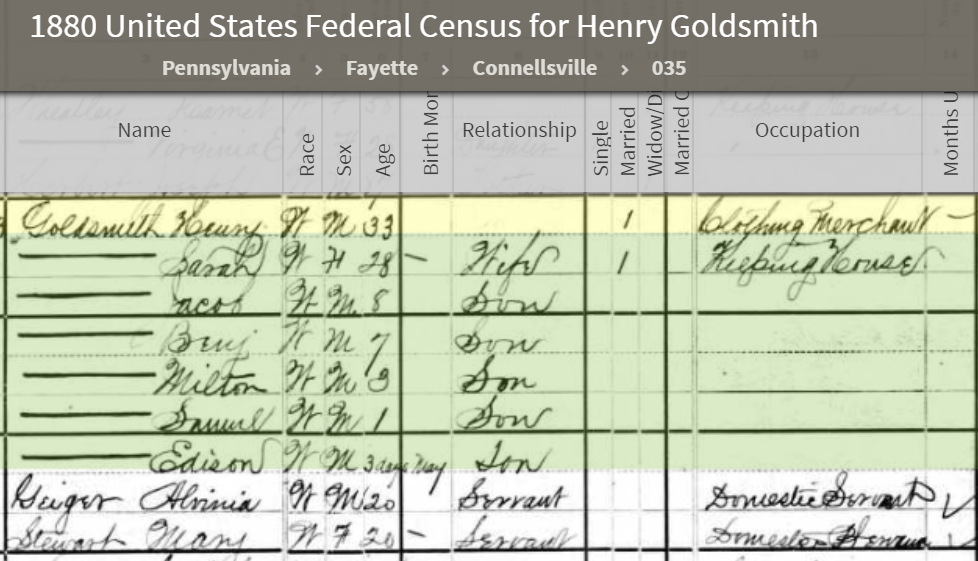 1880 United States Federal Census for Henry Goldsmith
Pennsylvania › Fayette › Connellsville › 035
Name Race Sex Age Birth Mor Relationship Single Married Widow/D Married C Occupation Months U
Goldsmith Henry W M 33 1 Clothing Merchant –
—— Sarah W F 28 – Wife 1 Keeping House
—— Jacob W M 8 Son
—— Benj W M 7 Son
—— Milton W M 3 Son
—— Samuel W M 1 Son
—— Edison W M 3 days May Son
Geiger Alvinia W M 20 Servant Domestic Servant
Stewart Mary W F 20 – Servant Domestic